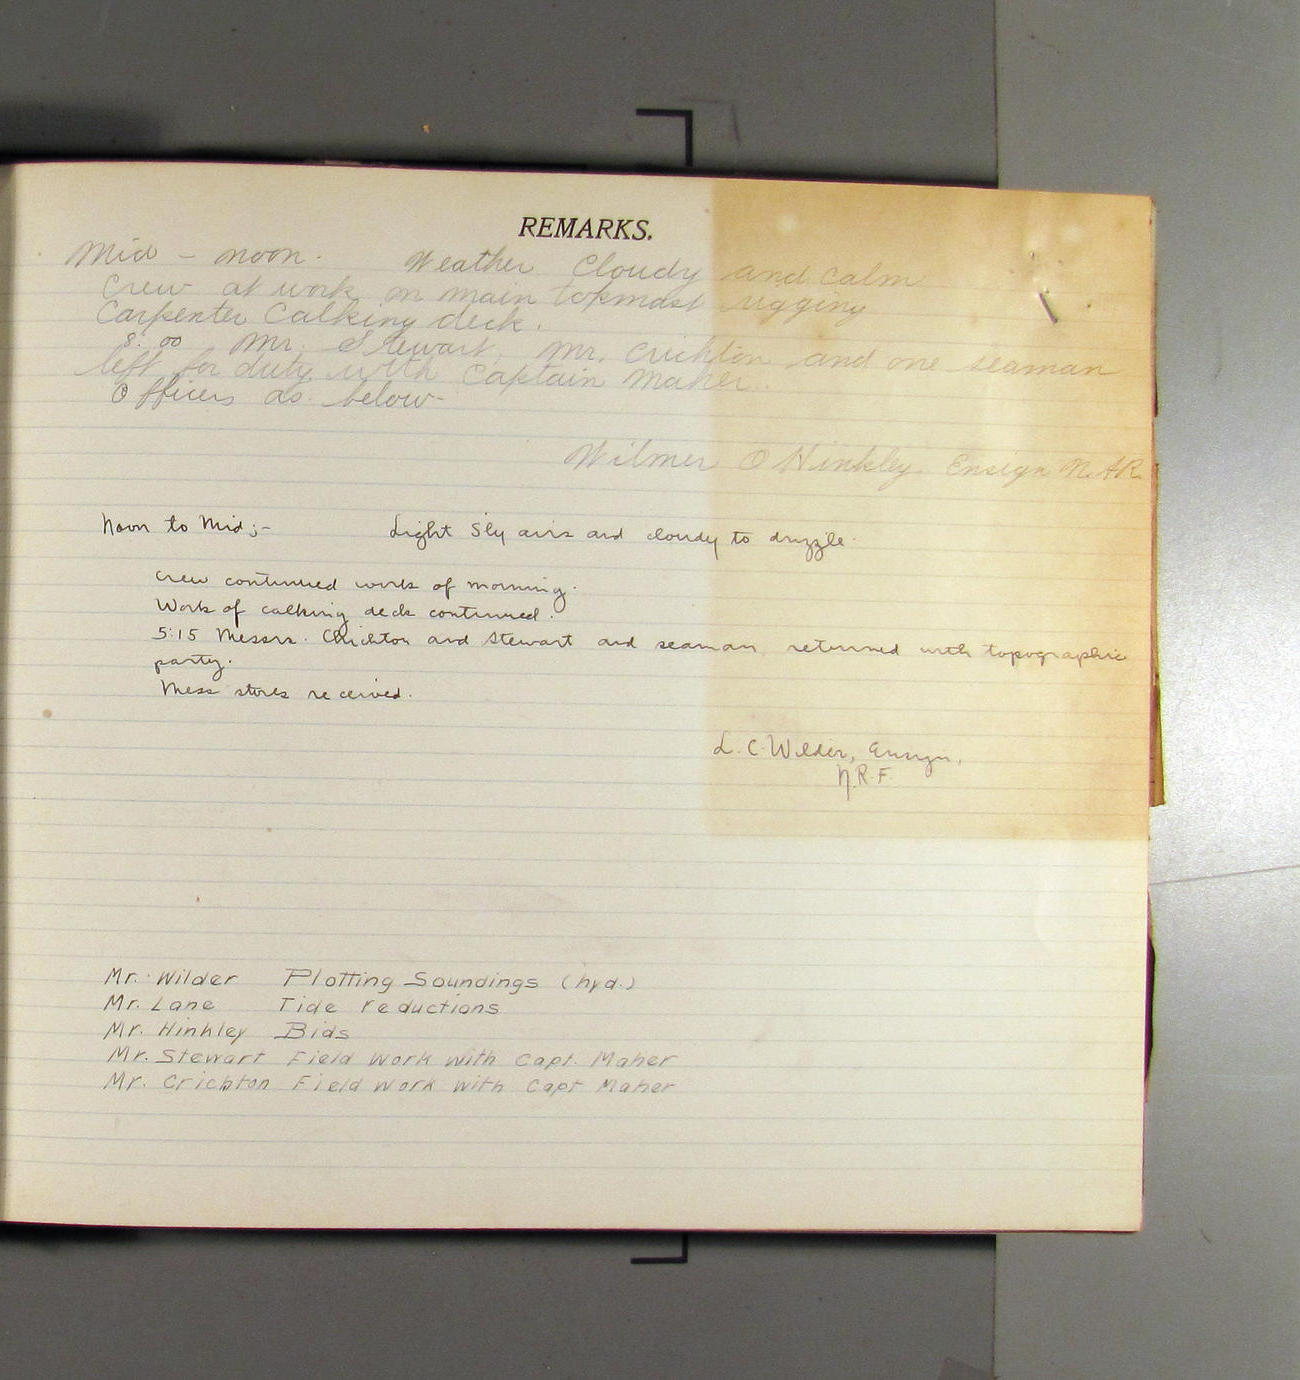 REMARKS.
Mid - noon. Weather Cloudy and calm
Crew at work on main topmast rigging
Carpenter Calking deck.
8:00 Mr. Stewart, Mr. Crichton and one seaman
left for duty with Captain Maher.
Officers as below-
Wilmer O Hinkley. Ensign N.
Noon to Mid;- Light S'ly airs and cloudy to drizzle.
Crew continued work of morning.
Work of calking deck continued.
5:15 Messrs. Crichton and Stewart and seaman returned with topographic
party.
Mess stores received.
L. C. Wilder, Ensign,
N.R.F.
Mr. Wilder Plotting Soundings (hyd.)
Mr. Lane Tide reductions
Mr. Hinkley Bids
Mr. Stewart Field Work with Capt. Maher
Mr. Crichton Field Work with Capt Maher